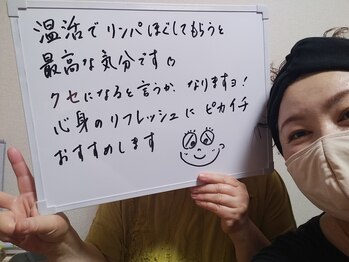 温活でリンパほぐしてもらうと
最高な気分です♡
クセになると言うか なりますヨ!
心身のリフレッシュに ピカイチ
おすすめします